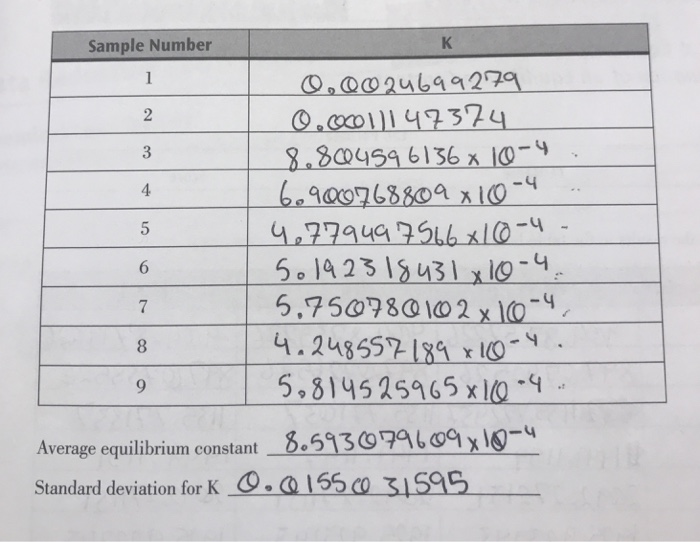 Sample Number K
1 0.0024699279
2 0.0011147374
3 8.804596136 x 10-4
4 6.900768809 x 10-4
5 4.7794497566 x 10-4
6 5.192318431 x 10-4
7 5.750780102 x 10-4
8 4.248557189 x 10-4
9 5.814525965 x 10-4
Average equilibrium constant 8.593079609 x 10-4
Standard deviation for K 0.0155031595